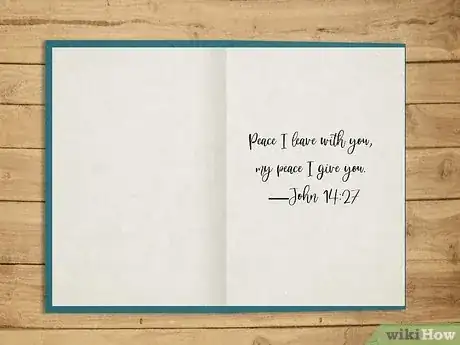 Peace I leave with you,
my peace I give you.
—John 14:27
wikiHow